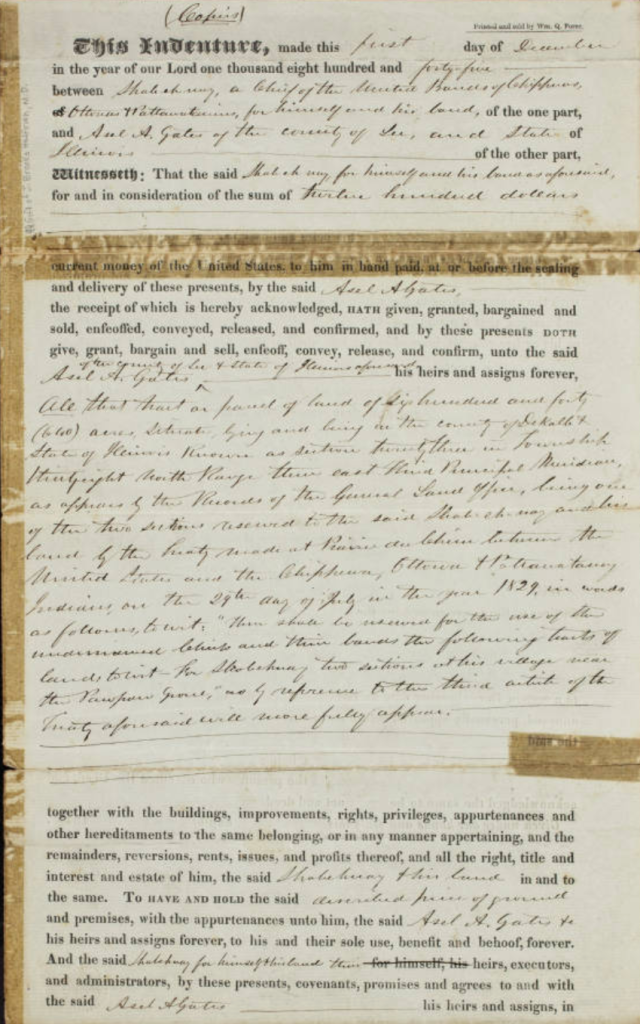 (Copies)
Printed and sold by Wm. Q. Force.
This Indenture, made this first day of December
in the year of our Lord one thousand eight hundred and forty-five
between Shabehnay, a Chief of the United Bands of Chippewa,
Ottowa & Pottawatamies, for himself and his band, of the one part,
and Asel A. Gates of the county of Lee, and State of
Illinois of the other part,
Witnesseth: That the said Shabehnay for himself and his band as aforesaid,
for and in consideration of the sum of twelve hundred dollars
current money of the United States, to him in hand paid, at or before the sealing
and delivery of these presents, by the said Asel A Gates,
the receipt of which is hereby acknowledged, HATH given, granted, bargained and
sold, enfeoffed, conveyed, released, and confirmed, and by these presents DOTH
give, grant, bargain and sell, enfeoff, convey, release, and confirm, unto the said
of the county of Lee & State of Illinois aforesaid
Asel A. Gates his heirs and assigns forever,
All that tract or parcel of land of six hundred and forty
(640) acres, Situate, lying and being in the county of Dekalb &
State of Illinois known as section twenty three in Township
thirtyeight North Range three east third Principal Meridian,
as appears by the Records of the General Land Office, being one
of the two sections reserved to the said Shabehnay and his
band by the Treaty made at Prairie du Chien between the
United States and the Chippewa, Ottowa & Potawatamy
Indians on the 29th day of July in the year 1829, in words
as follows, to wit; "there shall be reserved for the use of the
undernamed Chiefs and their bands the following tracts of
lands to wit - For Shabehnay two sections at his village near
the Pawpaw Grove," as by reference to the third article of the
Treaty aforesaid will more fully appear.
together with the buildings, improvements, rights, privileges, appurtenances and
other hereditaments to the same belonging, or in any manner appertaining, and the
remainders, reversions, rents, issues, and profits thereof, and all the right, title and
interest and estate of him, the said Shabehnay & his band in and to
the same. TO HAVE AND HOLD the said described piece of ground
and premises, with the appurtenances unto him, the said Asel A. Gates &
his heirs and assigns forever, to his and their sole use, benefit and behoof, forever.
And the said Shabehnay for himself & his band their for himself, his heirs, executors,
and administrators, by these presents, covenants, promises and agrees to and with
the said Asel A Gates his heirs and assigns, in